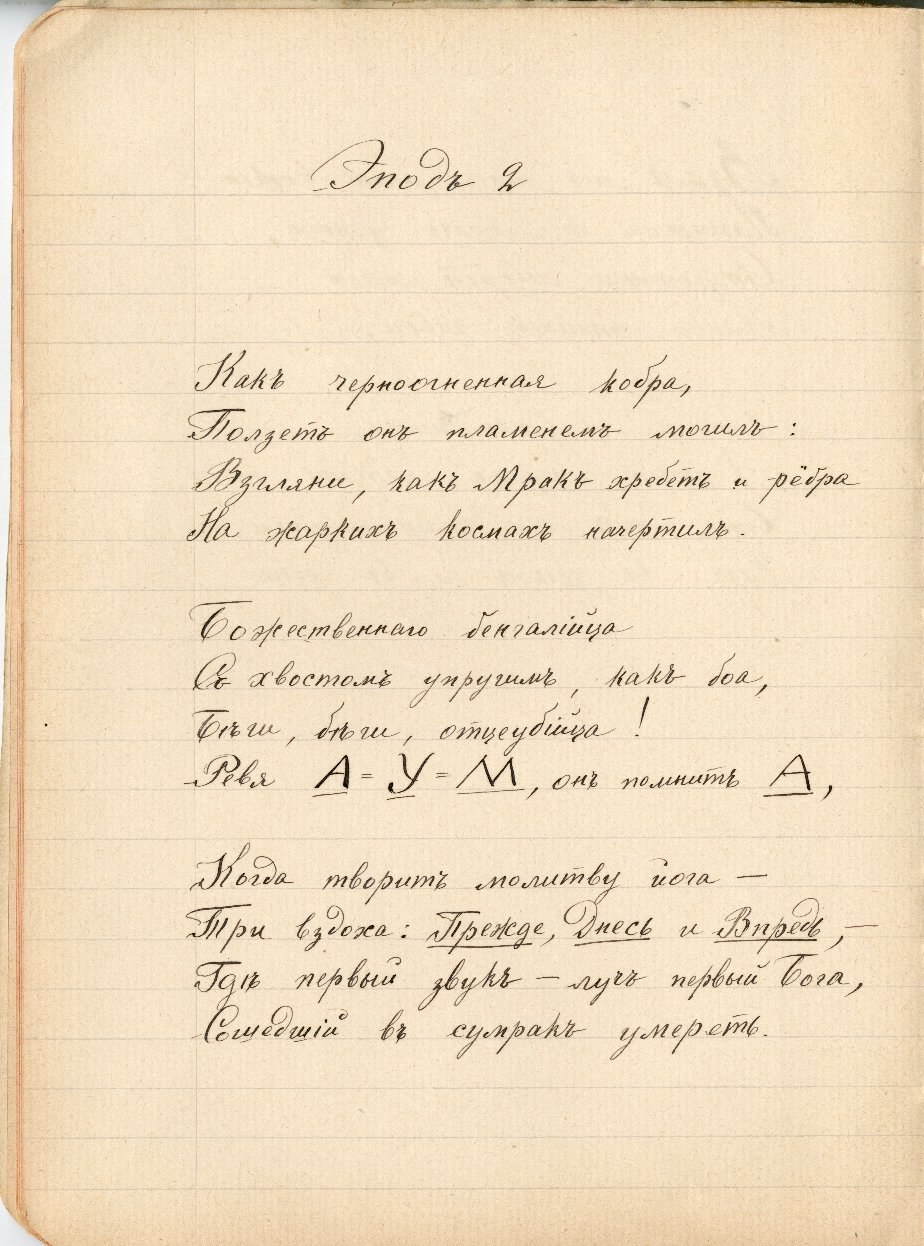 Эподъ 2
Какъ черноогненная кобра,
Ползетъ онъ пламенемъ могилъ:
Взгляни, какъ Мракъ хребетъ и рёбра
На жаркихъ космахъ начертилъ.
Божественнаго бенгалійца
Съ хвостомъ упругимъ, какъ боа,
Бѣги, бѣги, отцеубійца!
Ревя А=У=М, онъ помнитъ А,
Когда творитъ молитву йога —
Три вздоха: Прежде, Днесь и Впредь, —
Гдѣ первый звукъ — лучъ первый Бога,
Сошедшій въ сумракъ умереть.